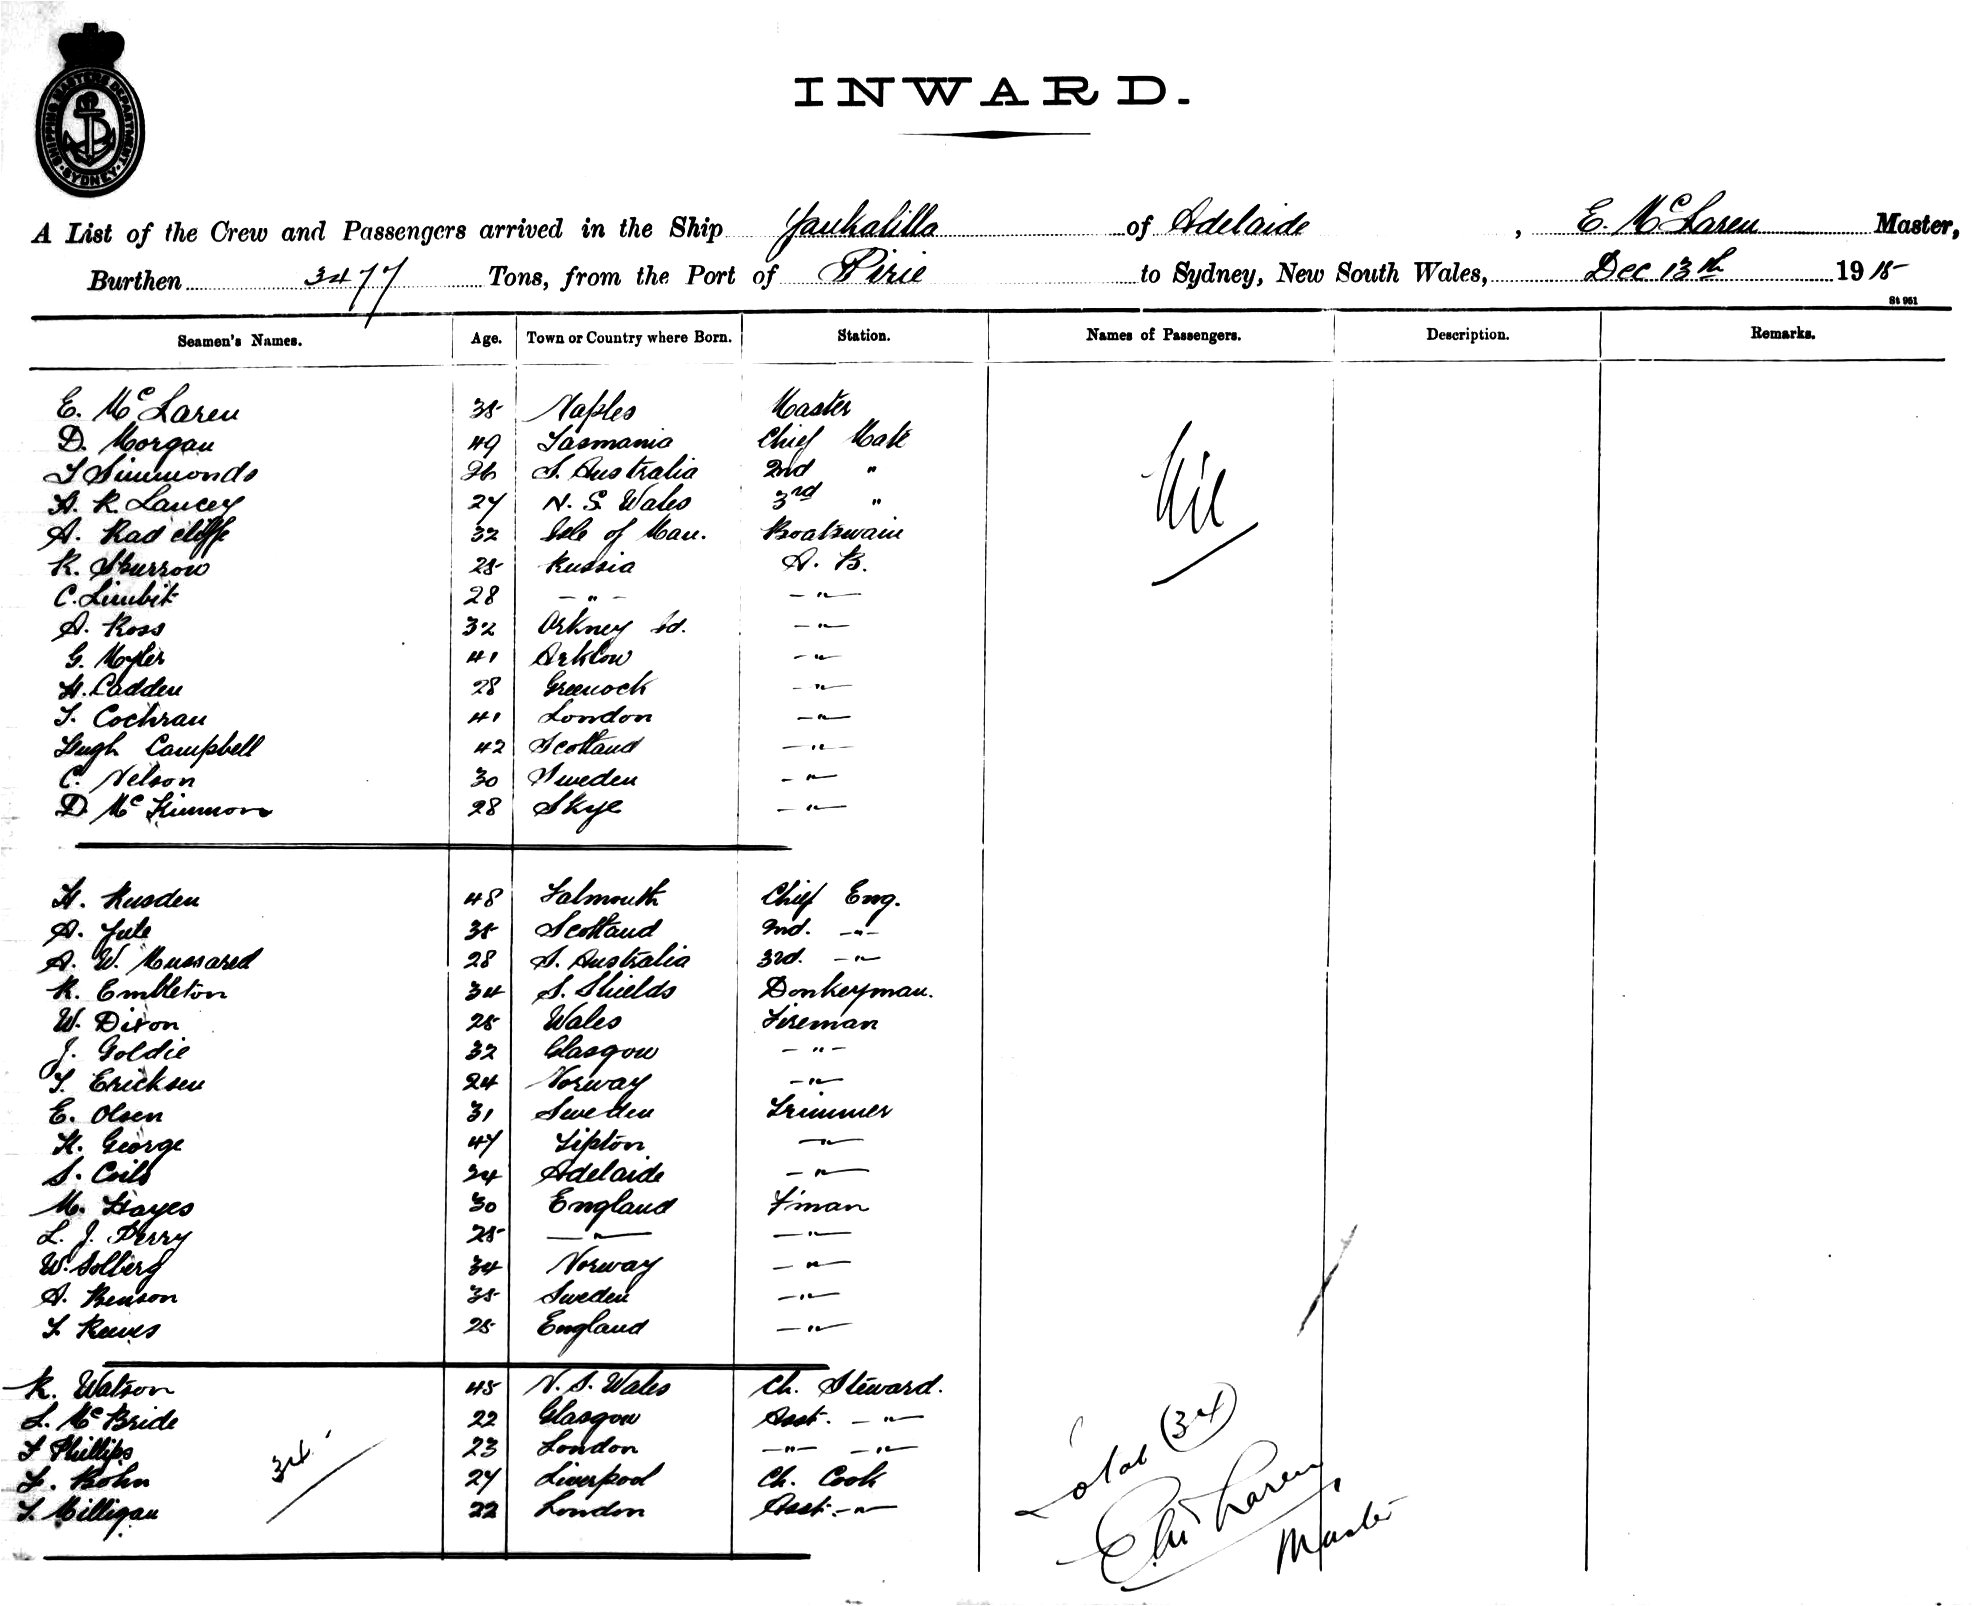 SHIPPING MASTERS DEPARTMENT SYDNEY
INWARD.
A List of the Crew and Passengers arrived in the Ship Yankalilla of Adelaide, E. McLaren Master,
Burthen 3477 Tons, from the Port of Pirie to Sydney, New South Wales, Dec 13th 1915
St 951
Seamen's Names. Age. Town or Country where Born. Station. Names of Passengers. Description. Remarks.
E. McLaren 35 Naples Master
D. Morgan 49 Tasmania Chief Mate
T Simmonds 26 S. Australia 2nd "
A. R. Lancey 27 N. S. Wales 3rd "
Nil
A. Radcliffe 32 Isle of Man. Boatswain
R. Sburrow 25 Russia A. B.
C. Limbit 28 - " - - " -
A. Ross 32 Orkney Id. - " -
G. Moyler 41 Arklow - " -
H. Cadden 28 Greenock - " -
T. Cochran 41 London - " -
Hugh Campbell 42 Scotland - " -
C. Nelson 30 Sweden - " -
D. McKinnon 28 Skye - " -
H. Rusden 48 Falmouth Chief Eng.
A. Yule 35 Scotland 2nd. - " -
A. W. Mussared 28 S. Australia 3rd. - " -
R. Embleton 34 S. Shields Donkeyman.
W. Dixon 25 Wales Fireman
J. Goldie 32 Glasgow - " -
T. Ericksen 24 Norway - " -
E. Olsen 31 Sweden Trimmer
H. George 47 Tipton - " -
S. Coils 24 Adelaide - " -
M. Hayes 30 England F'man
L. J. Perry 25 - " - - " -
W. Solberg 34 Norway - " -
A. Benson 35 Sweden - " -
T. Reeves 25 England - " -
R. Watson 45 N. S. Wales Ch. Steward.
L. McBride 22 Glasgow Asst. - " -
F Phillips 23 London - " - - " -
L. Bohn 27 Liverpool Ch. Cook
T. Milligan 22 London Asst. - " -
34.
Total (34)
E McLaren
Master